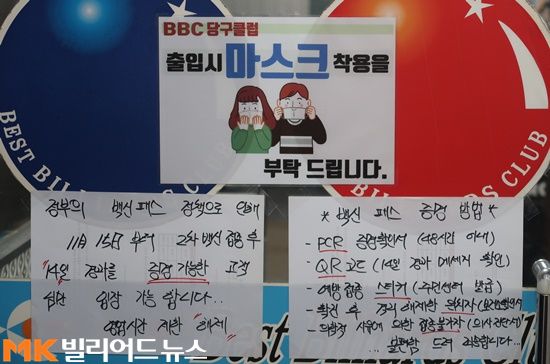 BBC 당구클럽
출입시 마스크 착용을
부탁 드립니다.
BEST BIL
BEST BILLIARDS CLUB
정부의 백신 패스 정책으로 인해
11월 15일 부터 2차 백신 접종 후
"14일" 경과를 증명 가능한 고객
님만 입장 가능 합니다..
영업시간 제한 "해제"
* 백신 패스 증명 방법 *
- PCR 음성확인서 (48시간 이내)
- QR 코드 (14일 경과 메세지 확인)
- 예방 접종 스티커 (주민센터 발급)
- 확진 후 격리 해제한 확진자
- 의학적 사유에 의한 접종불가자 (의사소견서)
.. 불편함 드려 죄송합니다..
Best
MK 빌리어드뉴스